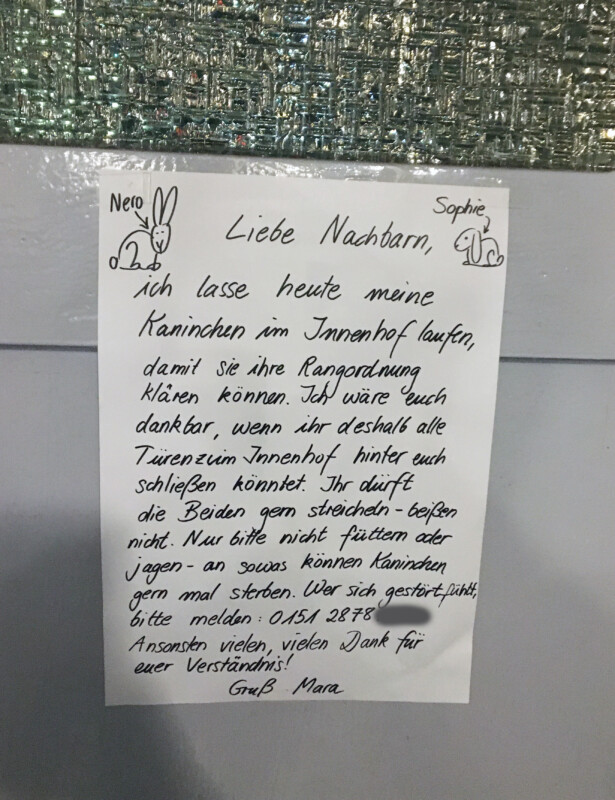 Nero
Sophie
Liebe Nachbarn,
ich lasse heute meine
Kaninchen im Innenhof laufen,
damit sie ihre Rangordnung
klären können. Ich wäre euch
dankbar, wenn ihr deshalb alle
Türen zum Innenhof hinter euch
schließen könntet. Ihr dürft
die Beiden gern streicheln - beißen
nicht. Nur bitte nicht füttern oder
jagen - an sowas können Kaninchen
gern mal sterben. Wer sich gestört fühlt,
bitte melden: 0151 2878
Ansonsten vielen, vielen Dank für
euer Verständnis!
Gruß Mara